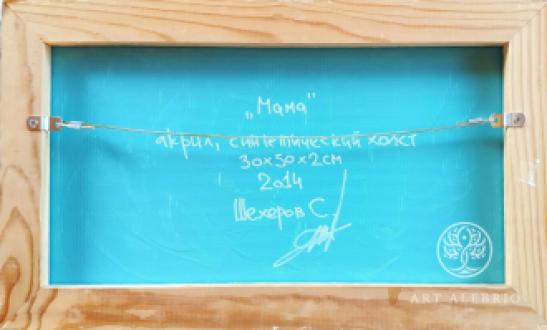 „Мама"
акрил, синтетический холст
30х50х2см
2014
Шехеров С.
ART ALEBRIO